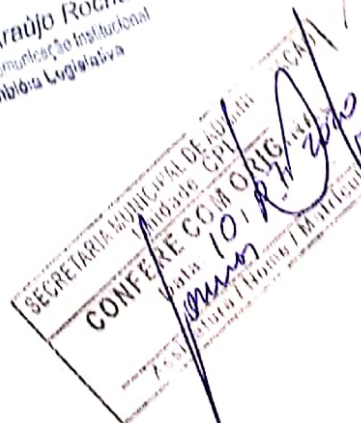 raújo Roch
omunicação Institucional
mbléia Legislativa
SECRETARIA MUNICIPAL DE ADMINI
CPL
CONFERE COM O ORIG
Data: 10,
Assinatura / Nome / Matrícul